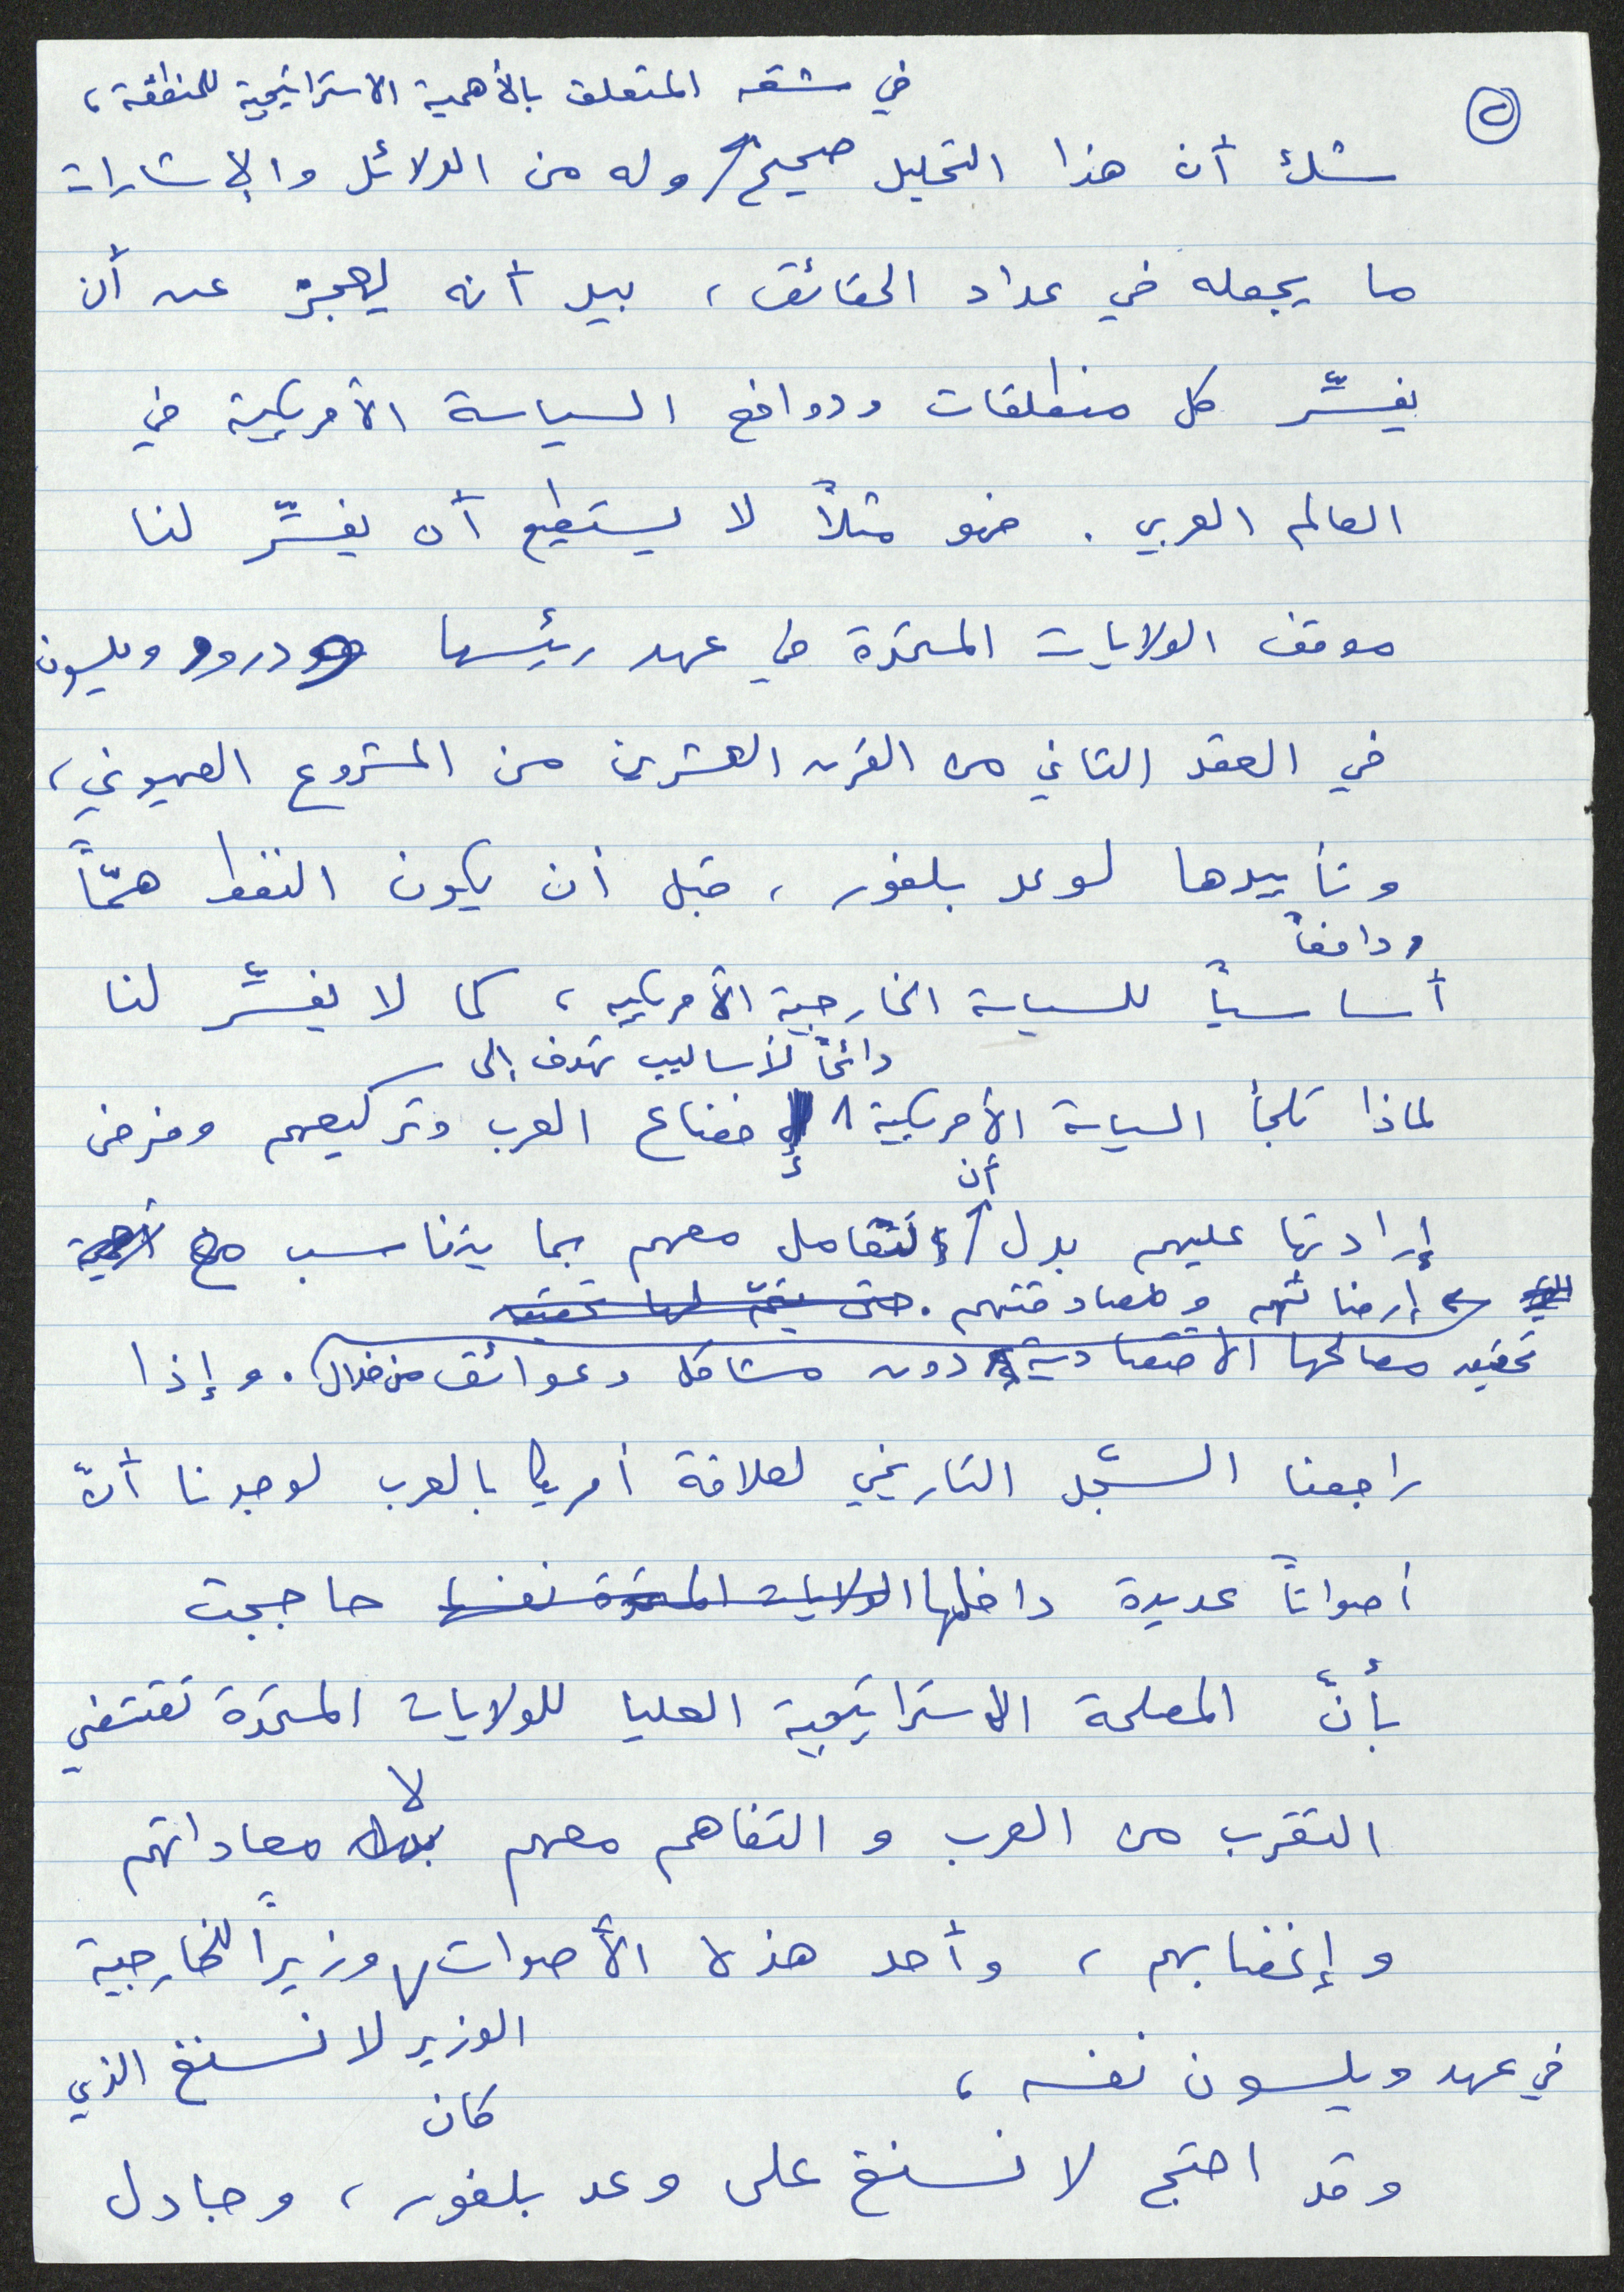 ٢
في شقه المتعلق بالأهمية الاستراتيجية للمنطقة،
شك أن هذا التحليل صحيح وله من الدلائل والإشارات
ما يجعله في عداد الحقائق، بيد أنه يعجز عن أن
يفسِّر كل منطلقات ودوافع السياسة الأمريكية في
العالم العربي. فهو مثلاً لا يستطيع أن يفسِّر لنا
موقف الولايات المتحدة في عهد رئيسها ودرو ويلسون
في العقد الثاني من القرن العشرين من المشروع الصهيوني،
وتأييدها لوعد بلفور، قبل أن يكون النفط همّاً
ودافعاً
أساسياً للسياسة الخارجية الأمريكية، كما لا يفسِّر لنا
دائماً لأساليب تهدف إلى
لماذا تلجأ السياسة الأمريكية إخضاع العرب وتركيعهم وفرض
أن
إرادتها عليهم بدل تتعامل معهم بما يتناسب مع أهمية
إرضائهم ومصادقتهم. حتى يتمّ لها تحقيق
تحقيق مصالحها الاقتصادية دون مشاكل وعوائق من خلال. وإذا
راجعنا السِّجل التاريخي لعلاقة أمريكا بالعرب لوجدنا أنّ
أصواتاً عديدة داخلها الولايات المتحدة نفسها حاججت
بأنّ المصلحة الاستراتيجية العليا للولايات المتحدة تقتضي
لا
التقرب من العرب و التفاهم معهم بدل معاداتهم
وإغضابهم، وأحد هذه الأصوات وزيراً للخارجية
الوزير لانسنغ الذي
في عهد ويلسون نفسه،
كان
وقد احتج لانسنغ على وعد بلفور، وجادل